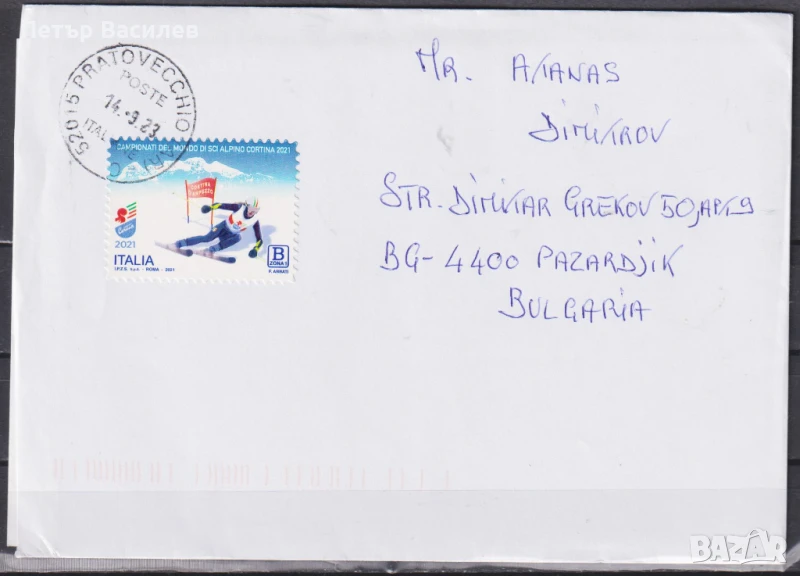 Петър Василев
52015 PRATOVECCHIO
POSTE
14.-9.23
ITAL
CAMPIONATI DEL MONDO DI SCI ALPINO CORTINA 2021
CORTINA
D'AMPEZZO
Cortina
2021
ITALIA
B
ZONA 1
I.P.Z.S. S.p.A. - ROMA - 2021
F. ABBATI
MR. ATANAS
DIMITROV
STR. DIMITAR GREKOV 50, AP. 9
BG- 4400 PAZARDJIK
BULGARIA
BAZAR